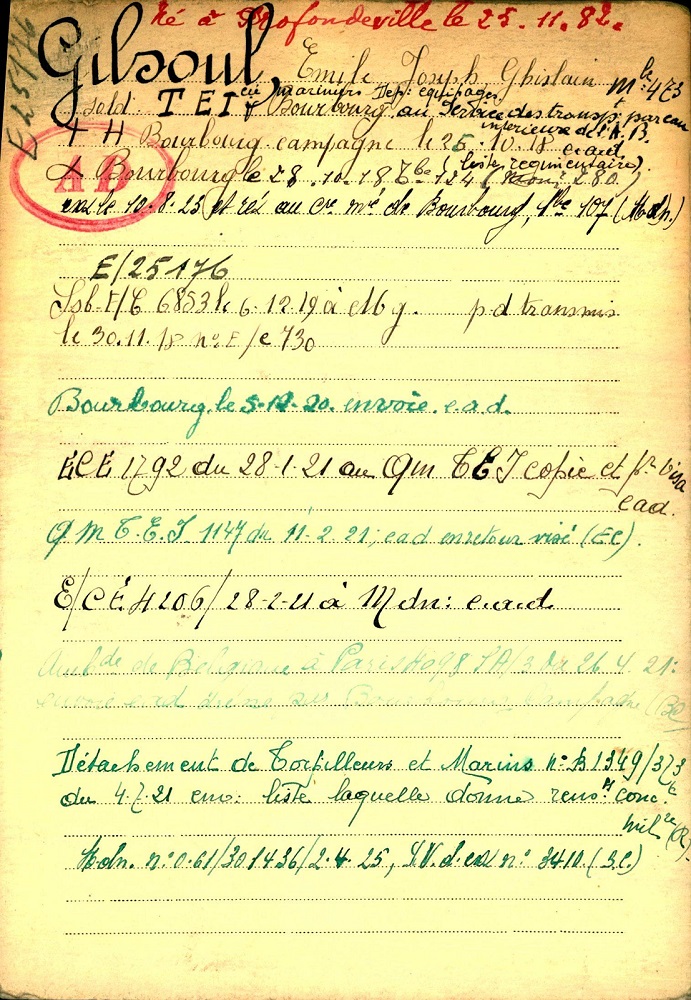 Né à Profondeville le 25.11.82.
E25176
Gilsoul, Emile Joseph Ghislain Mle 473
sold: TEI cie mariniers Dép: équipages
Bourbourg au Service des transpts par eau
intérieure de l'A.B.
+ H Bourbourg campagne le 25.10.18 e.a.d
(liste regimentaire)
+ Bourbourg le 28.10.18 Tbe 124 (Mon: 280)
AB
ex le 10.8.25 et ré au cre mre de Bourbourg, tbe 107 (Mdn.)
E/25176
Ssb. F/C 6853 le 6-12-19 à Mg. p.d transmis
le 30.11.18 no E/e 730
Bourbourg le 5-12-20. envoie e.a.d.
ECE 1792 du 28-1-21 au QM TEI copie et pr visa
ead.
QM T.E.I. 1147 du 11-2-21; ead en retour visé (EC).
E/CE 4206/28-2-21 à Mdn: e.a.d
Ambde de Belgique à Paris 4098 SA/3 du 26.4.21:
envoie ead Bourbourg Campagne
Détachement de Torpilleurs et Marins no B 1349/373
du 4.7.21 env: liste laquelle donne rensts conc.
milre (R).
Mdn. no 0.61/301436/2-4-25, P.V. d. ex no 3410. (SC)